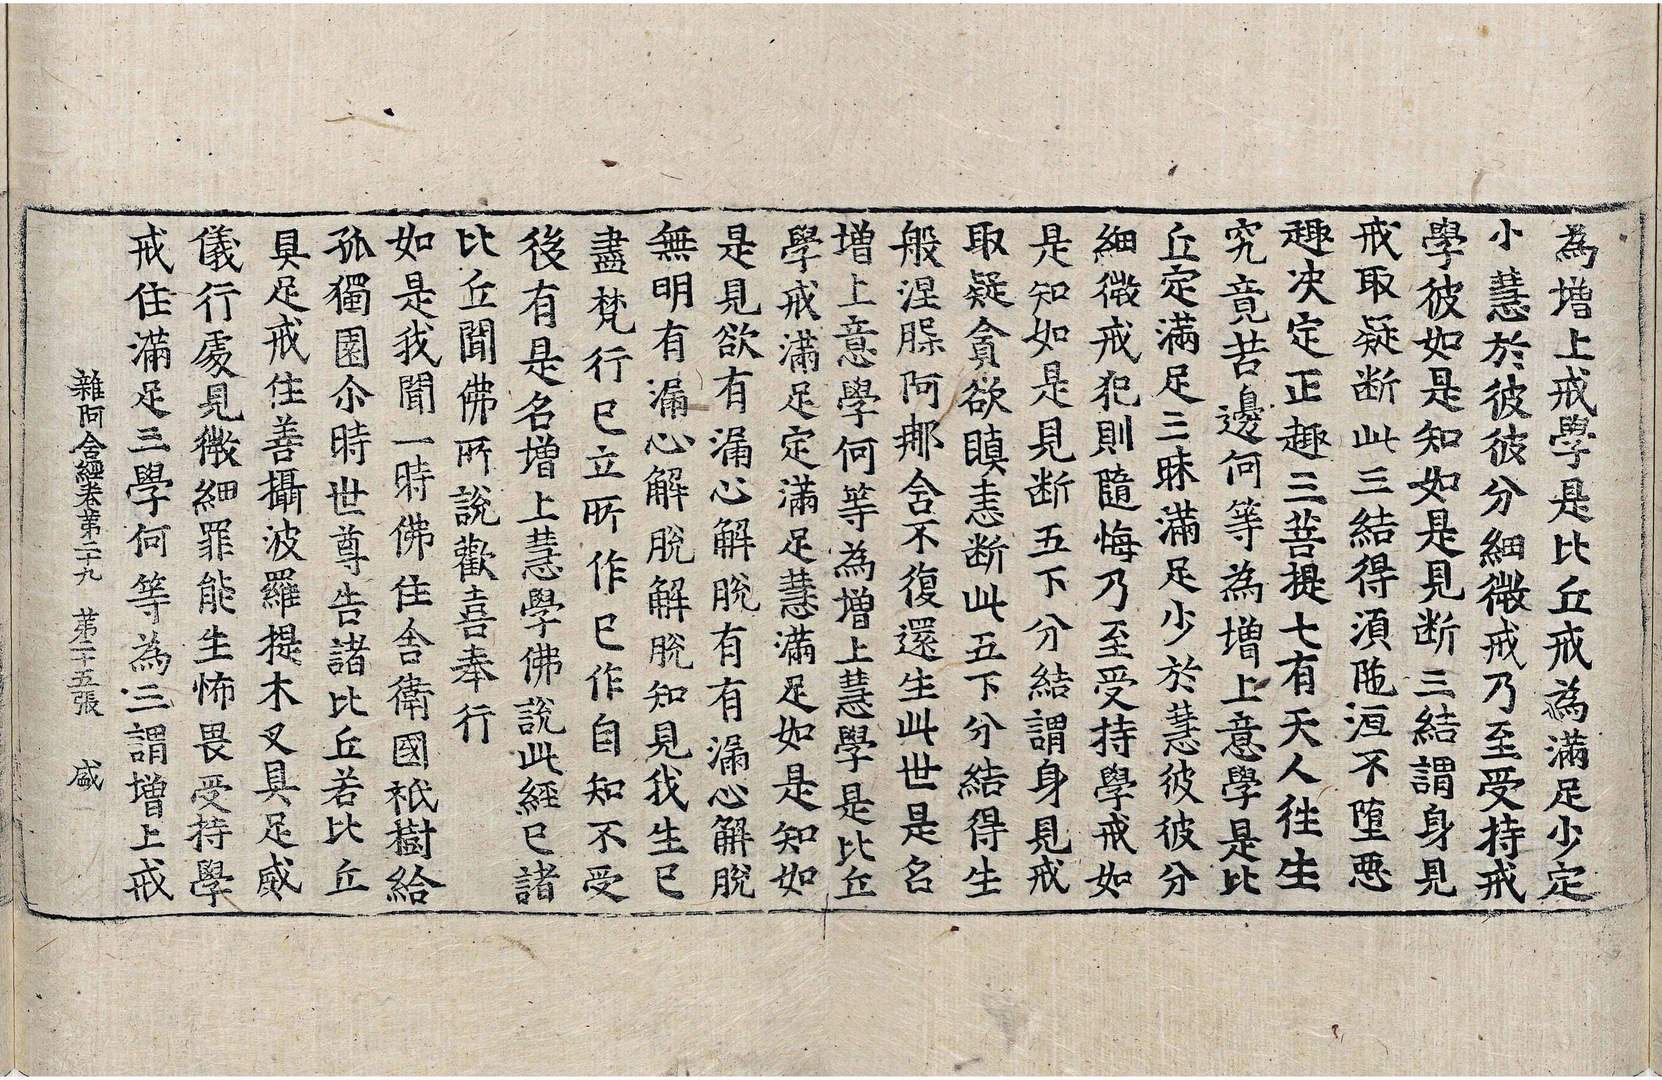 為增上戒學是比丘戒為滿足少定
小慧於彼彼分細微戒乃至受持戒
學彼如是知如是見断三結謂身見
戒取疑断此三結得湏陁洹不墮惡
趣决定正趣三菩提七有天人往生
究竟苦邊何等為增上意學是比
丘定滿足三昧滿足少於慧彼彼分
細微戒犯則隨悔乃至受持學戒如
是知如是見断五下分結謂身見戒
取疑貪欲瞋恚断此五下分結得生
般涅槃阿那含不復還生此世是名
增上意學何等為增上慧學是比丘
學戒滿足定滿足慧滿足如是知如
是見欲有漏心解脫有有漏心解脫
無明有漏心解脫解脫知見我生已
盡梵行已立所作已作自知不受
後有是名增上慧學佛說此經已諸
比丘聞佛所說歡喜奉行
如是我聞一時佛住舍衛國祇樹給
孤獨園尒時世尊告諸比丘若比丘
具足戒住善攝波羅提木叉具足威
儀行處見微細罪能生怖畏受持學
戒住滿足三學何等為三謂增上戒
雜阿含經卷第二十九 第二十五張 盛